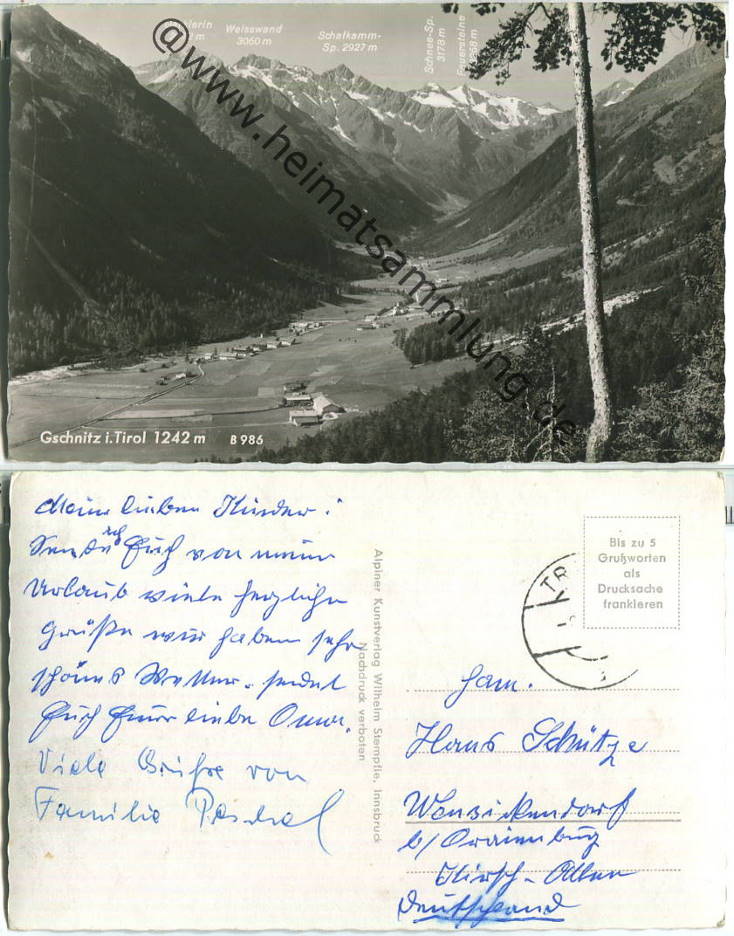 Weisswand
3060 m
Schafkamm-
Sp. 2927 m
Schnee-Sp.
3178 m
Feuerstein
3268 m
@www.heimatsammlung.de
Gschnitz i. Tirol 1242 m B 986
Meine lieben Kinder!
Sende ich Euch von meine
Urlaub viele herzliche
Grüße wir haben sehr
schönes Wetter. sendet
Euch Euer liebe Oma.
Viele Grüße von
Familie
Alpiner Kunstverlag Wilhelm Stempfle, Innsbruck
Nachdruck verboten
Bis zu 5
Grußworten
als
Drucksache
frankieren
TR
Fam.
Hans Schütze
Wensickendorf
b/ Oranienburg
Kirsch-Allee
Deutschland